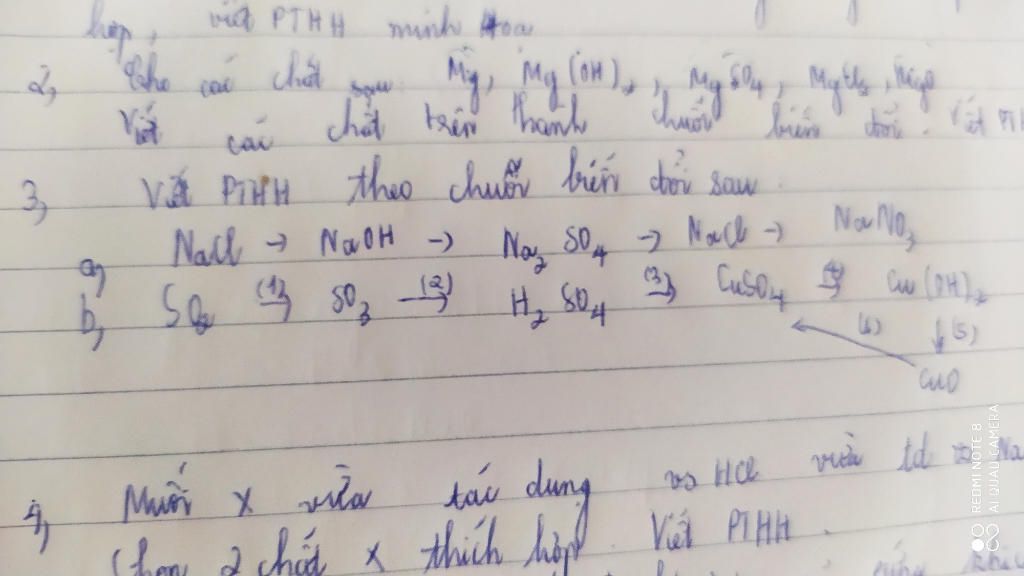 hợp, viết PTHH minh hoa
2, Cho các chất sau: Mg, Mg(OH)2, MgSO4, MgCl2, MgO
Viết các chất trên thành chuỗi biến đổi. Viết
3, Viết PTHH theo chuỗi biến đổi sau
a, NaCl → NaOH → Na2SO4 → NaCl → NaNO3
b, SO2 (1)→ SO3 (2)→ H2SO4 (3)→ CuSO4 (4)→ Cu(OH)2
(6) ↓(5)
CuO
4, Muối X vừa tác dụng vs HCl vừa td vs Na
Chọn 2 chất X thích hợp. Viết PTHH.
REDMI NOTE 8
AI QUAD CAMERA